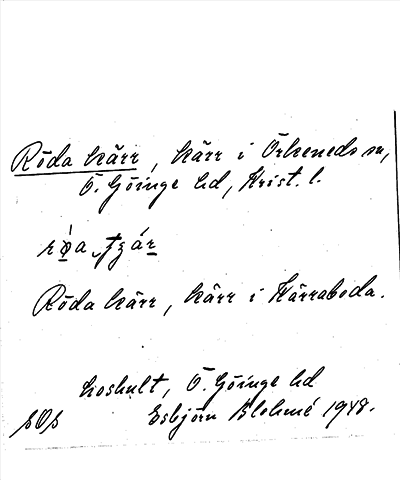 Röda kärr, kärr i Örkeneds sn,
Ö. Göinge hd, Krist. l.
Röda kärr, kärr i Kärraboda.
Loshult, Ö. Göinge hd
Esbjörn Blohmé 1948.